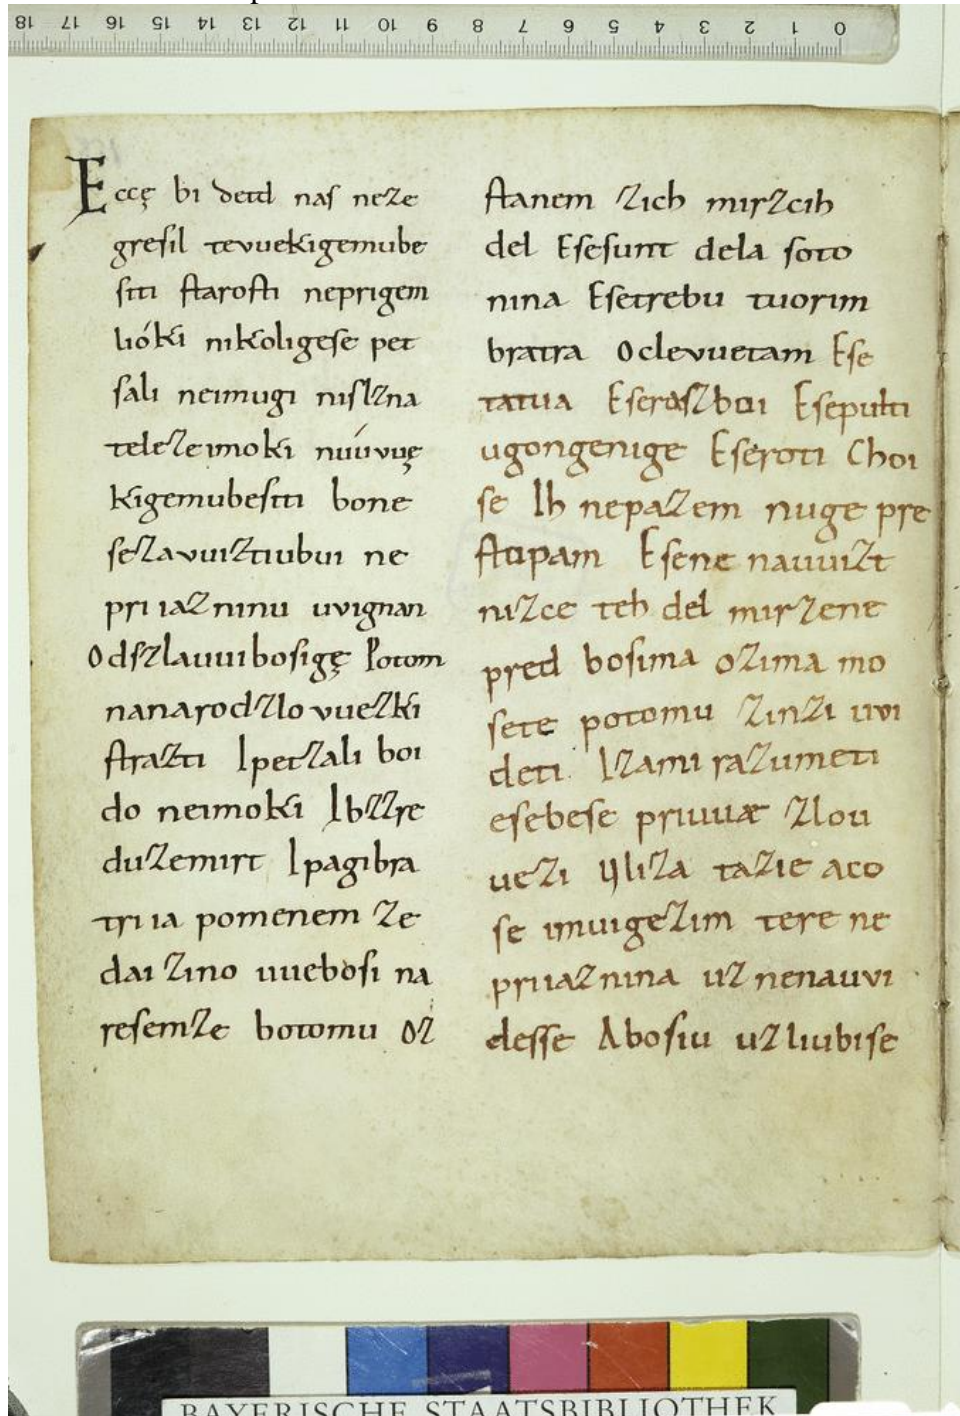 18 17 16 15 14 13 12 11 10 9 8 7 6 5 4 3 2 1 0
Eccę bi detd naſ neze
greſil tevuekigemube
ſiti ſtaroſti neprigem
lióki nikoligeſe pet
ſali neimugi niſlzna
telezeimoki nuúvuę
kigemubeſiti bone
ſezavuiztiubui ne
priiazninu uvignan
Odſzlauuibosigę Potom
nanarodzlovuezki
ſtrazti Ipetzali boi
do neimoki Ibzzre
duzemirt Ipagibra
triia pomenem ze
dai zino uuebosi na
reſemze botomu oz
ſtanem zich mirzcih
del Eſeſunt dela ſoto
nina Eſetrebu tuorim
bratra Oclevuetam Eſe
tatua Eſerazboi Eſepulti
ugongenige Eſeroti Choi
ſe Ih nepazem nuge pre
ſtopam Eſene nauuizt
nizce teh del mirzene
pred boſima ozima mo
ſete potomu zinzi uvi
deti Izami razumeti
eſebeſe priuuæ zlou
uezi Ijliza tazie aco
ſe imuigezim tere ne
priiaznina uz nenauvi
deſſe Aboſiu uzliubiſe
BAYERISCHE STAATSBIBLIOTHEK